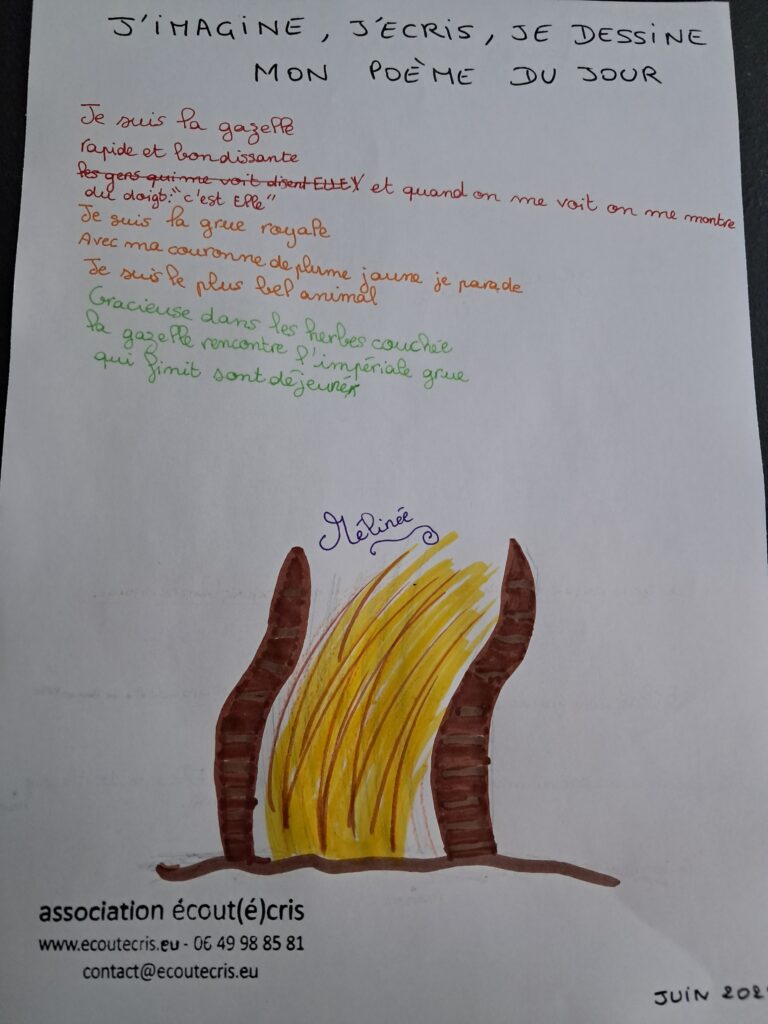 J'IMAGINE, J'ECRIS, JE DESSINE
MON POÈME DU JOUR
Je suis la gazelle
rapide et bondissante
les gens qui me voit disent ELLE et quand on me voit on me montre
du doigt: "c'est Elle"
Je suis la grue royale
Avec ma couronne de plume jaune je parade
Je suis le plus bel animal
Gracieuse dans les herbes couchée
la gazelle rencontre l'impériale grue
qui finit sont déjeuné
Mélinée
association écout(é)cris
www.ecoutecris.eu - 06 49 98 85 81
contact@ecoutecris.eu
JUIN